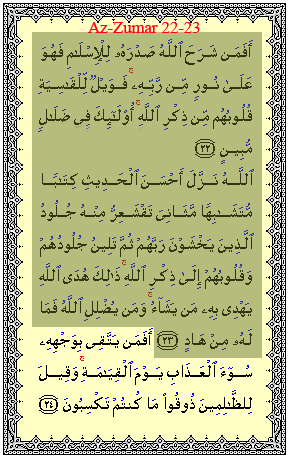 Az-Zumar 22-23
أَفَمَن شَرَحَ ٱللَّهُ صَدْرَهُۥ لِلْإِسْلَٰمِ فَهُوَ
عَلَىٰ نُورٍ مِّن رَّبِّهِۦ ۚ فَوَيْلٌ لِّلْقَٰسِيَةِ
قُلُوبُهُم مِّن ذِكْرِ ٱللَّهِ ۚ أُو۟لَٰٓئِكَ فِى ضَلَٰلٍ
مُّبِينٍ ﴿٢٢﴾
ٱللَّهُ نَزَّلَ أَحْسَنَ ٱلْحَدِيثِ كِتَٰبًا
مُّتَشَٰبِهًا مَّثَانِىَ تَقْشَعِرُّ مِنْهُ جُلُودُ
ٱلَّذِينَ يَخْشَوْنَ رَبَّهُمْ ثُمَّ تَلِينُ جُلُودُهُمْ
وَقُلُوبُهُمْ إِلَىٰ ذِكْرِ ٱللَّهِ ۚ ذَٰلِكَ هُدَى ٱللَّهِ
يَهْدِى بِهِۦ مَن يَشَآءُ ۚ وَمَن يُضْلِلِ ٱللَّهُ فَمَا
لَهُۥ مِنْ هَادٍ ﴿٢٣﴾ أَفَمَن يَتَّقِى بِوَجْهِهِۦ
سُوٓءَ ٱلْعَذَابِ يَوْمَ ٱلْقِيَٰمَةِ ۚ وَقِيلَ
لِلظَّٰلِمِينَ ذُوقُوا۟ مَا كُنتُمْ تَكْسِبُونَ ﴿٢٤﴾